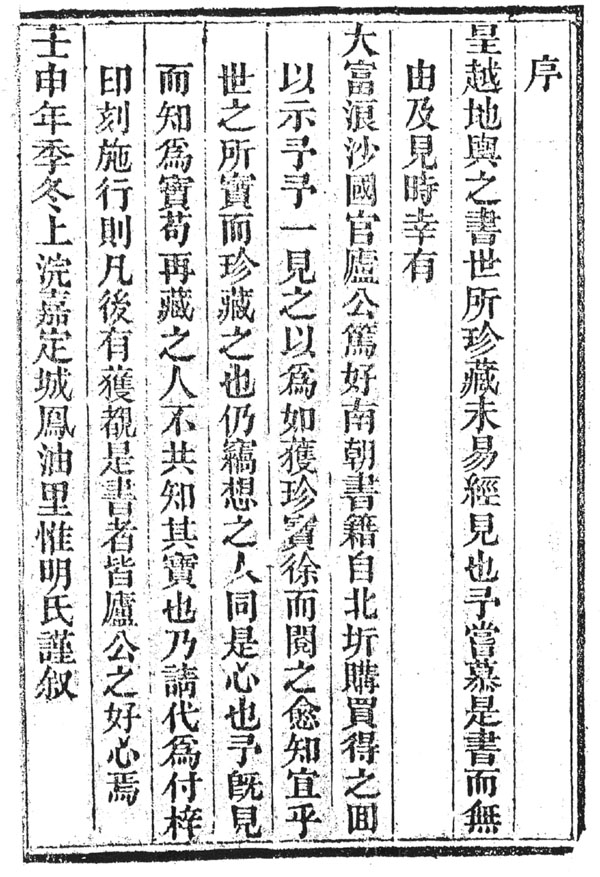 序
皇越地輿之書世所珍藏未易經見也予嘗慕是書而無
由及見時幸有
大富浪沙國官廬公篤好南朝書籍自北圻購買得之囬
以示予予一見之以爲如獲珍寶徐而閱之愈知宜乎
世之所寶而珍藏之也仍竊想之人同是心也予旣見
而知爲寶苟再藏之人不共知其寶也乃請代爲付梓
印刻施行則凡後有獲覩是書者皆廬公之好心焉
壬申年季冬上浣嘉定城鳳油里惟明氏謹叙